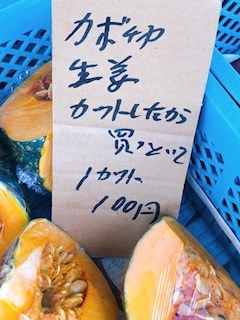 カボチャ
生姜
カットしたから
買っといて
1カット
100円